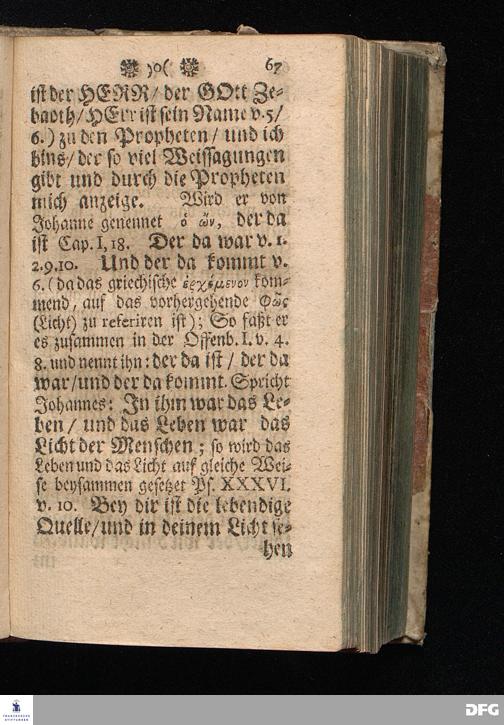 )o( 67
ist der HERR/ der GOtt Ze-
baoth/ HErr ist sein Name v. 5/
6.) zu den Propheten/ und ich
bins/ der so viel Weissagungen
gibt und durch die Propheten
mich anzeige. Wird er von
Johanne genennet ὁ ὤν, der da
ist Cap. I, 18. Der da war v. 1.
2. 9. 10. Und der da kommt v.
6. (da das griechische ἐρχόμενον kom-
mend, auf das vorhergehende Φῶς
(Licht) zu referiren ist); So faßt er
es zusammen in der Offenb. I. v. 4.
8. und nennt ihn: der da ist/ der da
war/ und der da kommt. Spricht
Johannes: In ihm war das Le-
ben/ und das Leben war das
Licht der Menschen; so wird das
Leben und das Licht auf gleiche Wei-
se beysammen gesetzet Ps. XXXVI.
v. 10. Bey dir ist die lebendige
Quelle/ und in deinem Licht se-
hen
FRANCKESCHE
STIFTUNGEN
DFG